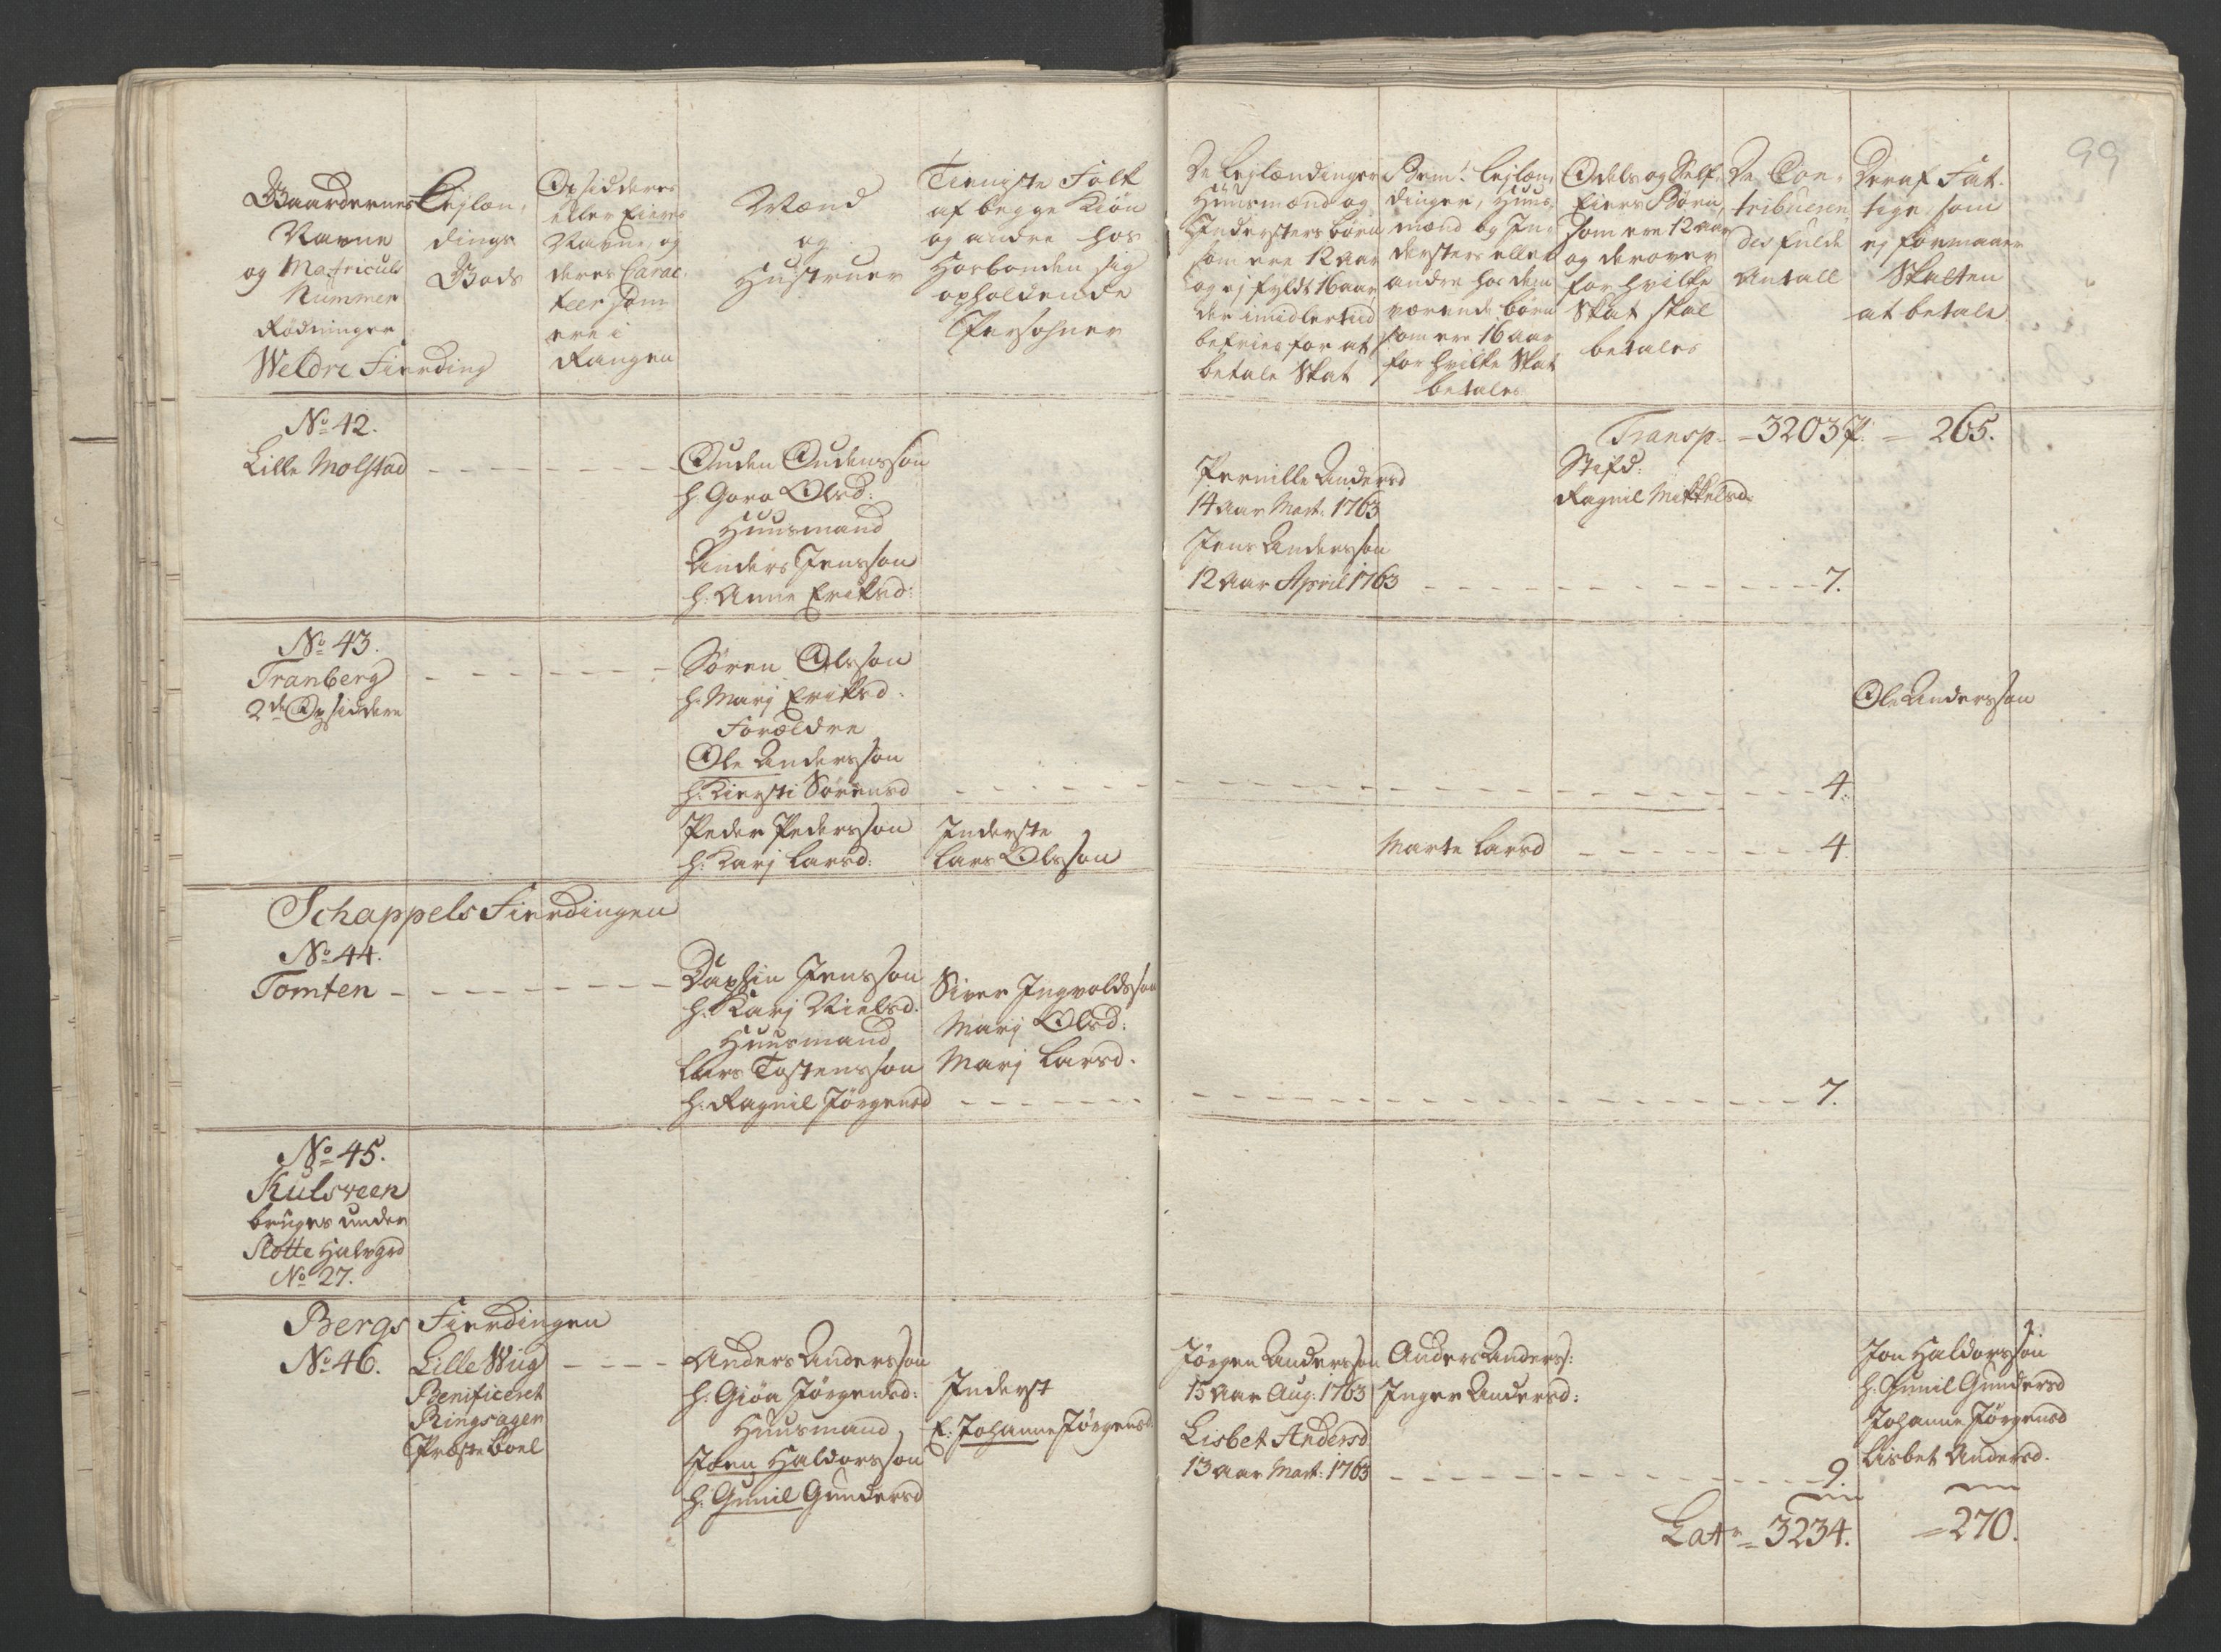 99
Gaardernes
Navne
og Matriculs
Nummer
Rodninger
Weldre Fierding
Lejlæn-
dings
Gods
Opsidderes
eller Eieres
Navne, og
deres Carac-
teer som
ere i
Rangen
Mænd
og
Hustruer
Tieniste Folk
af begge Kiøn
og andre hos
Hosbonden sig
opholdende
Persohner
De Lejlændinger
Huusmænd og
Indersters børn
som ere 12 aar
og ej fyldt 16 aar
der imidlertiid
befries for at
betale Skat
Bem: Lejlæn-
dinger, Huus-
mænd og In-
dersters eller
andre hos dem
værende børn
som ere 16 aar
for hvilke Skat
betales
Odels og Self-
Eiers Børn,
som ere 12 aar
og derover
for hvilke
Skat skal
betales
De Con-
tribueren-
des fulde
Antall
Deraf Fat-
tige, som
ej formaaer
Skatten
at betale
Transp. = 3203 P. = 265.
No 42.
Lille Molstad
Auden Audensson
h. Goro Olsd:
Huusmand
Anders Jensson
h. Anne Eriksd:
Pernille Andersd
14 aar Mart: 1763
Jens Andersson
12 aar April 1763
Stifd:
Ragnil Mikkelsd:
7.
No 43.
Tranberg
2de Opsiddere
Søren Olsson
h. Marj Eriksd.
Forældre
Ole Andersson
h. Kiersti Sørensd
4.
Ole Andersson
Peder Pedersson
h. Karj Larsd:
Inderste
Lars Olsson
Marte Larsd
4
Schappels Fierdingen
No 44.
Tomten
Daphin Jensson
h. Karj Nielsd.
Huusmand
Lars Tostensson
h. Ragnil Jørgensd
Siver Ingvoldsson
Marj Olsd:
Marj Larsd.
7.
No 45.
Kulsveen
bruges under
Slotte Halvgrd
No 27.
Bergs Fierdingen
No 46. Lille Wiig
Benificeret
Ringsager
Præste Boel
Anders Andersson
h. Giøa Jørgensd:
Huusmand
Joen Haldorsson
h. Gunil Gundersd
Inderst
E: Johanne Jørgensd.
Jørgen Andersson
15 Aar Aug: 1763
Lisbet Andersd
13 aar Mart: 1763
Anders Anders:
Inger Andersd:
9
Jon Haldorsson
h. Gunil Gundersd
Johanne Jørgensd
Lisbet Andersd.
Latr = 3234. = 270.